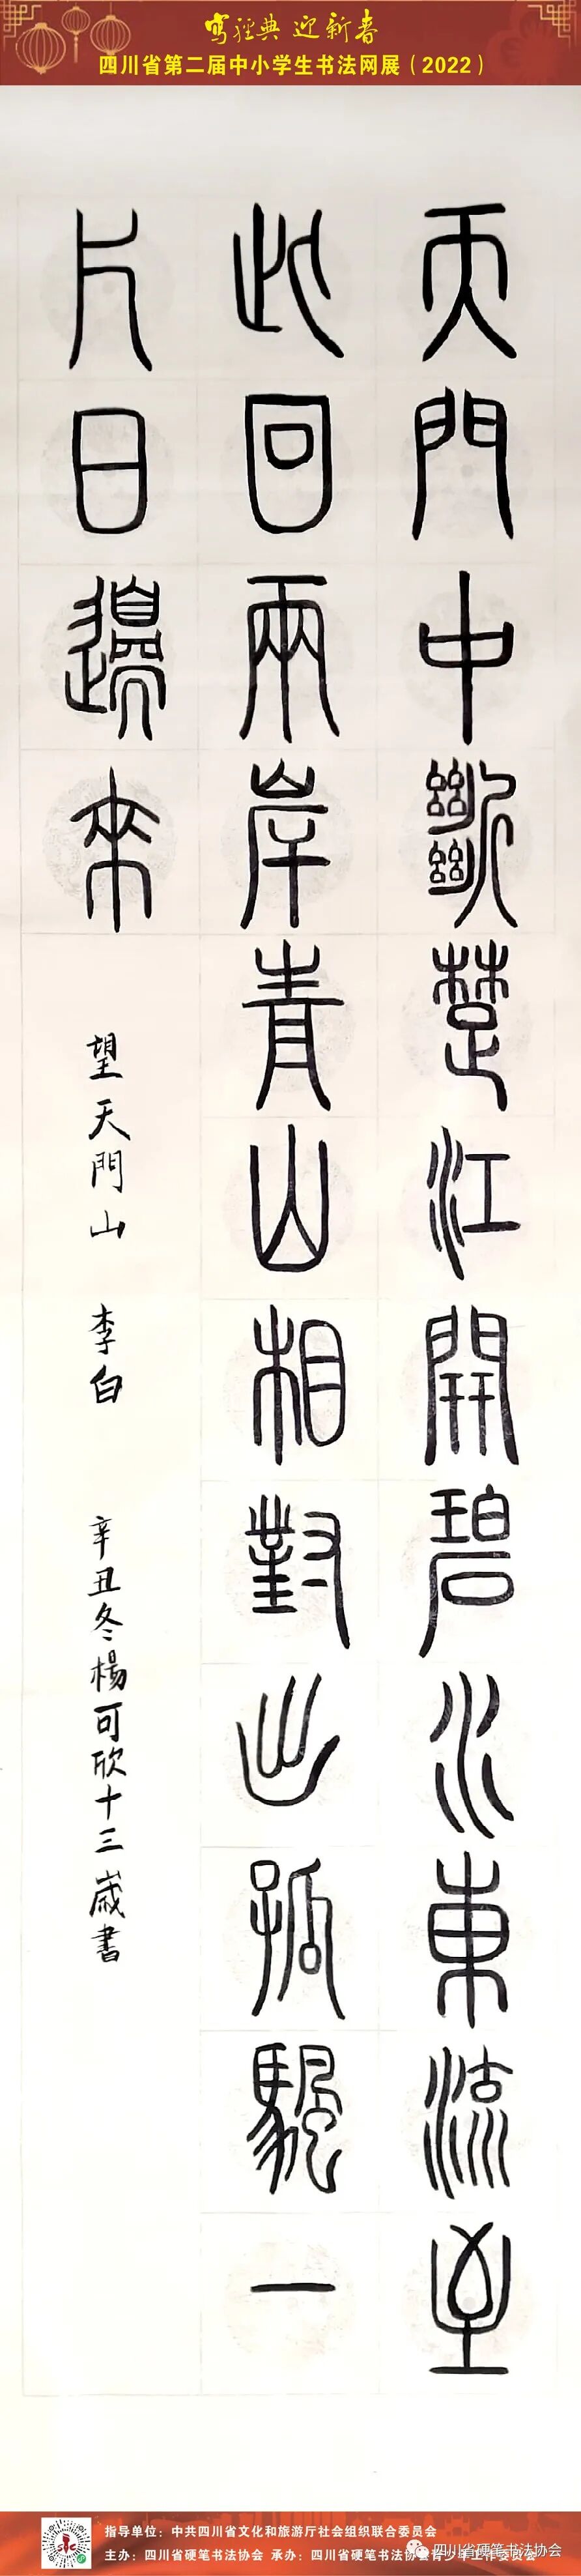 写经典 迎新春
四川省第二届中小学生书法网展（2022）
天門中斷楚江開碧水東流至
此回兩岸青山相對出孤颿一
片日邊來
望天門山 李白 辛丑冬楊可欣十三歲書
指导单位：中共四川省文化和旅游厅社会组织联合委员会
主办：四川省硬笔书法协会 承办：四川省硬笔书法协会青少年工作委员会
四川省硬笔书法协会